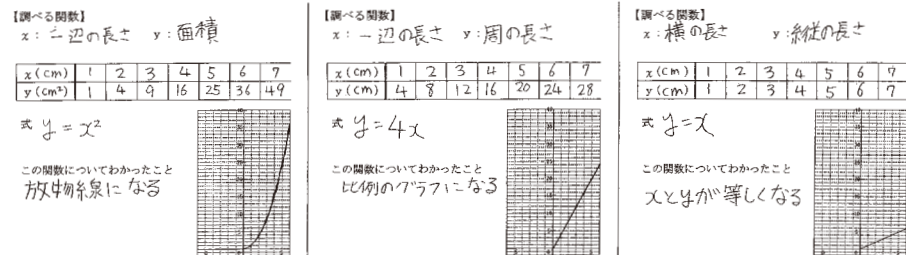 【調べる関数】
x : 一辺の長さ y : 面積
x(cm) 1 2 3 4 5 6 7
y(cm²) 1 4 9 16 25 36 49
式 y = x²
この関数についてわかったこと
放物線になる
【調べる関数】
x : 一辺の長さ y : 周の長さ
x(cm) 1 2 3 4 5 6 7
y(cm) 4 8 12 16 20 24 28
式 y = 4x
この関数についてわかったこと
比例のグラフになる
【調べる関数】
x : 横の長さ y : 縦の長さ
x(cm) 1 2 3 4 5 6 7
y(cm) 1 2 3 4 5 6 7
式 y = x
この関数についてわかったこと
xとyが等しくなる